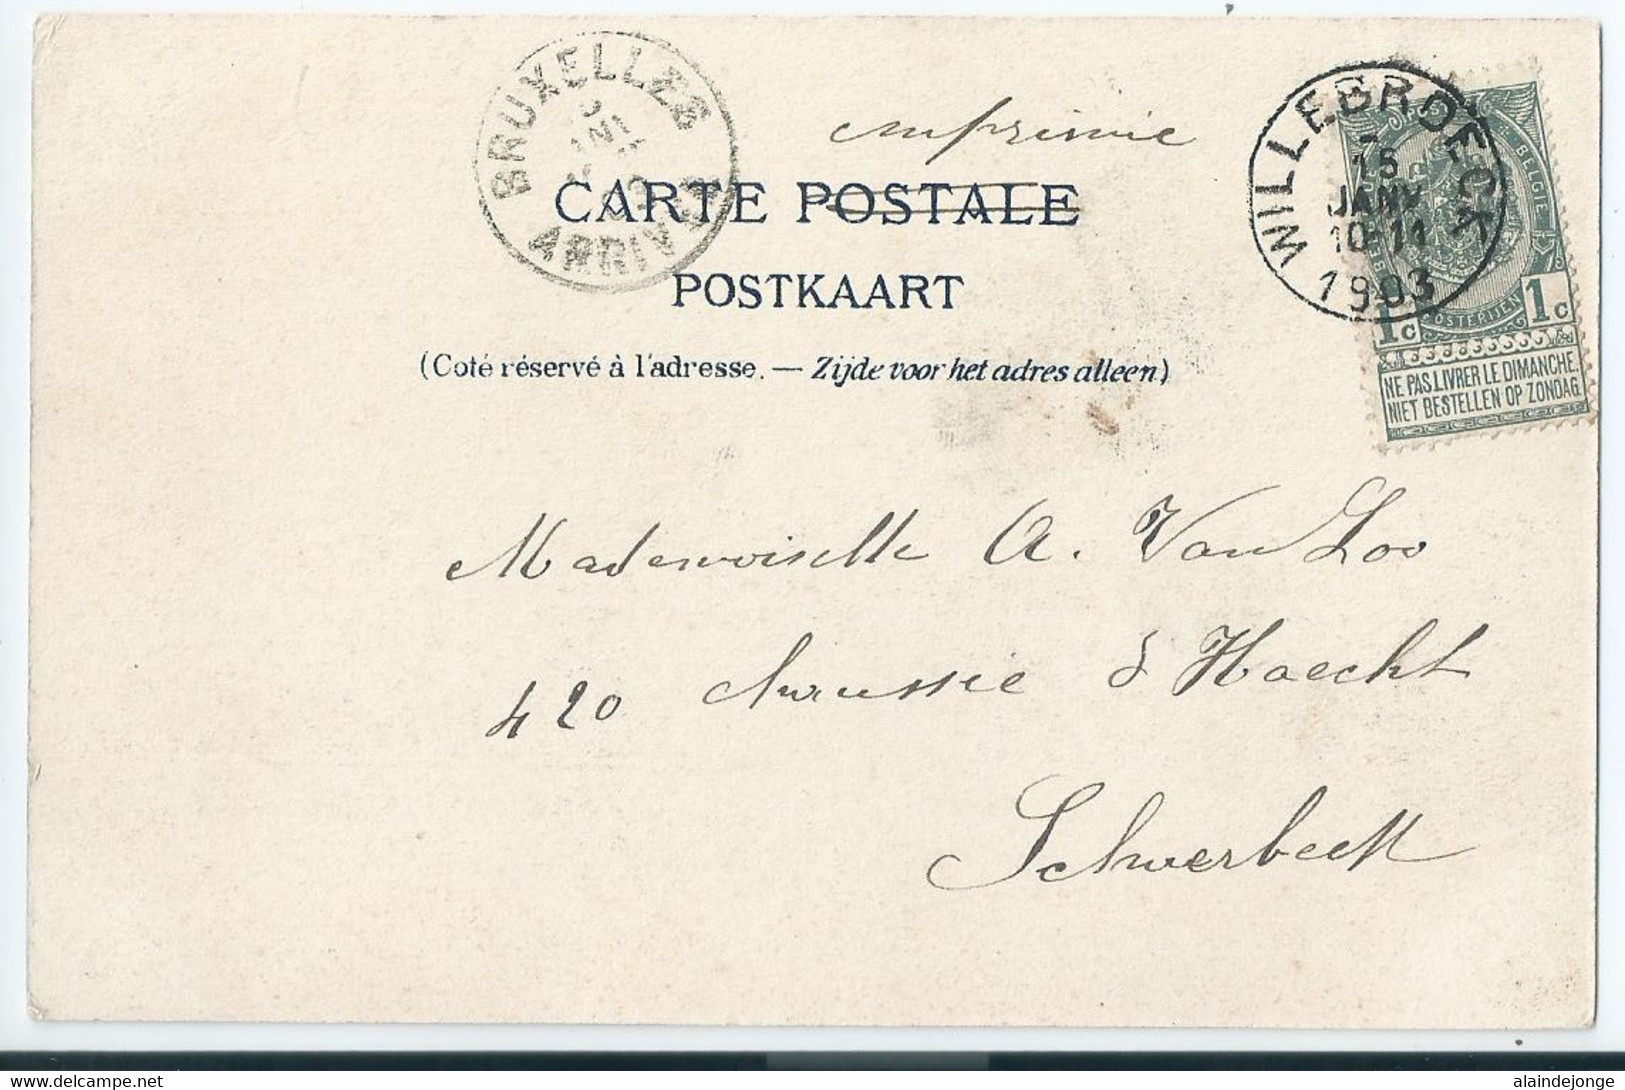 BRUXELLES
ARRIVÉE
imprimé
WILLEBROECK
15
JANV
10-11
1903
CARTE POSTALE
POSTKAART
(Coté réservé à l'adresse. — Zijde voor het adres alleen)
BELGIE
POSTERIJEN
1c 1c
NE PAS LIVRER LE DIMANCHE.
NIET BESTELLEN OP ZONDAG.
Mademoiselle A. Van Loo
420 chaussée d'Haecht
Schaerbeek
delcampe.net
alaindejonge